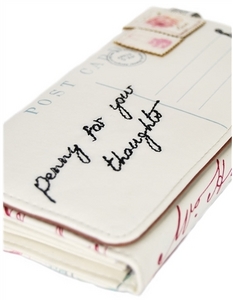 POST CARD
penny for your
thoughts